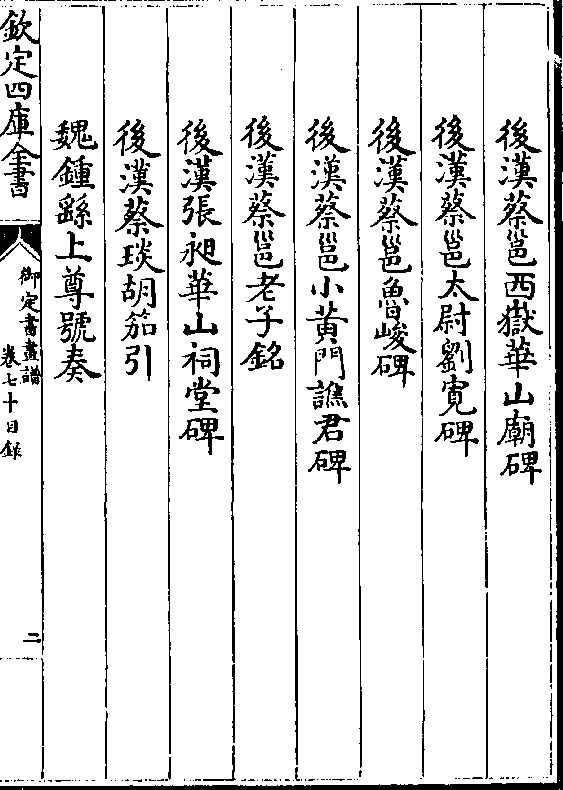 後漢蔡邕西嶽華山廟碑
後漢蔡邕太尉劉寛碑
後漢蔡邕魯峻碑
後漢蔡邕小黃門譙君碑
後漢蔡邕老子銘
後漢張昶華山祠堂碑
後漢蔡琰胡笳引
魏鍾繇上尊號奏
欽定四庫全書
御定書畫譜
卷七十目録
二